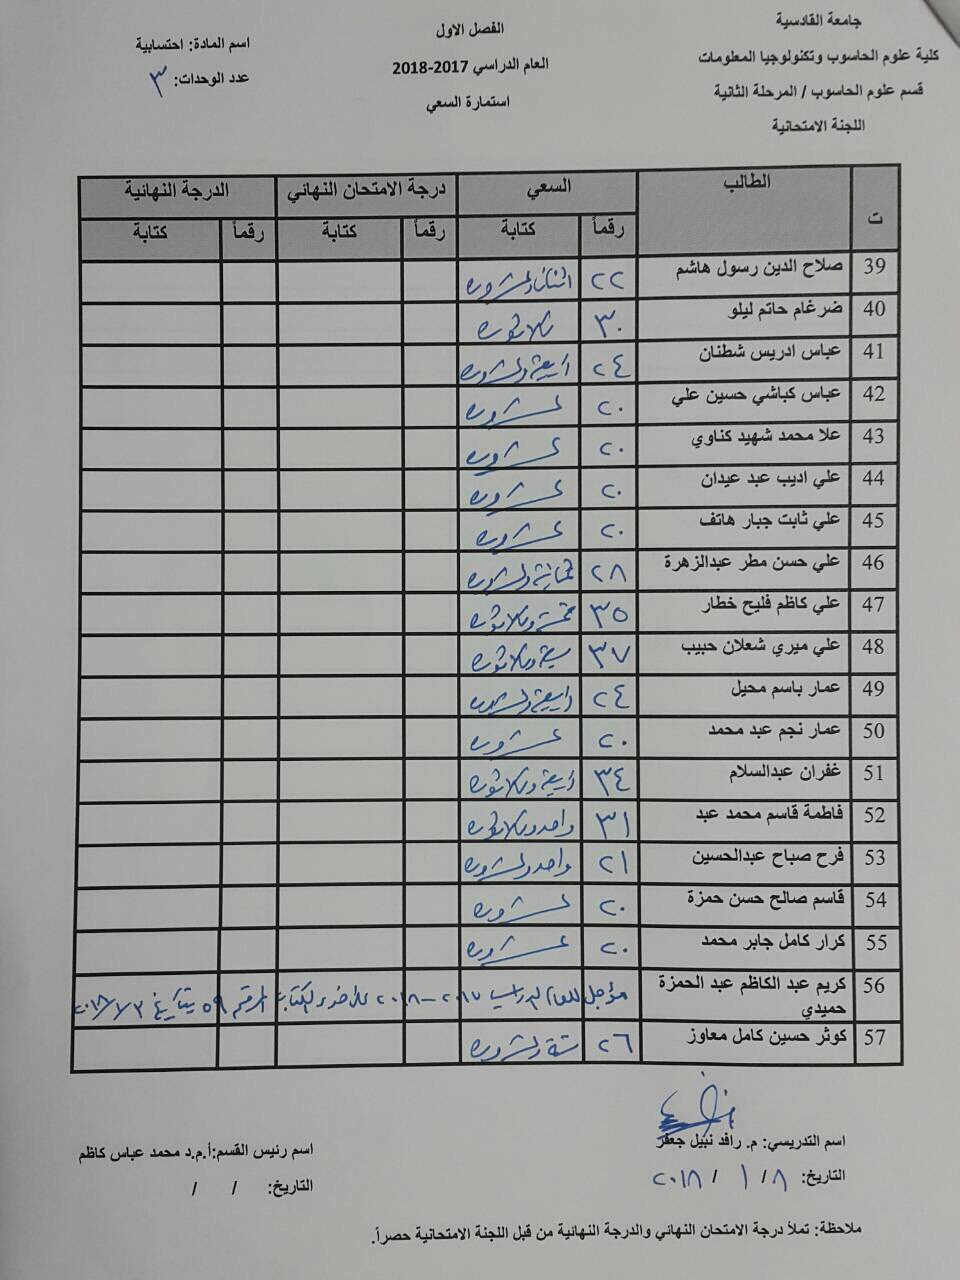 جامعة القادسية
كلية علوم الحاسوب وتكنولوجيا المعلومات
قسم علوم الحاسوب / المرحلة الثانية
اللجنة الامتحانية
الفصل الاول
العام الدراسي 2017-2018
استمارة السعي
اسم المادة: احتسابية
عدد الوحدات: ٣
ت الطالب السعي درجة الامتحان النهائي الدرجة النهائية
رقماً كتابة رقماً كتابة رقماً كتابة
39 صلاح الدين رسول هاشم ٢٢ اثنان وعشرون
40 ضرغام حاتم ليلو ٣٠ ثلاثون
41 عباس ادريس شطنان ٢٤ اربعة وعشرون
42 عباس كباشي حسين علي ٢٠ عشرون
43 علا محمد شهيد كناوي ٢٠ عشرون
44 علي اديب عبد عيدان ٢٠ عشرون
45 علي ثابت جبار هاتف ٢٠ عشرون
46 علي حسن مطر عبدالزهرة ٢٨ ثمانية وعشرون
47 علي كاظم فليح خطار ٣٥ خمسة وثلاثون
48 علي ميري شعلان حبيب ٣٧ سبعة وثلاثون
49 عمار باسم محيل ٢٤ اربعة وعشرون
50 عمار نجم عبد محمد ٢٠ عشرون
51 غفران عبدالسلام ٣٤ اربعة وثلاثون
52 فاطمة قاسم محمد عبد ٣١ واحد وثلاثون
53 فرح صباح عبدالحسين ٢١ واحد وعشرون
54 قاسم صالح حسن حمزة ٢٠ عشرون
55 كرار كامل جابر محمد ٢٠ عشرون
56 كريم عبد الكاظم عبد الحمزة حميدي مؤجل للعام الدراسي ٢٠١٧-٢٠١٨ الكتاب المرقم ٥٩ بتاريخ ٢٠١٨/١/٣
57 كوثر حسين كامل معاوز ٢٦ ستة وعشرون
اسم التدريسي: م. رافد نبيل جعفر
التاريخ: ٨ / ١ / ٢٠١٨
اسم رئيس القسم:أ.م.د محمد عباس كاظم
التاريخ: / /
ملاحظة: تملأ درجة الامتحان النهائي والدرجة النهائية من قبل اللجنة الامتحانية حصراً.